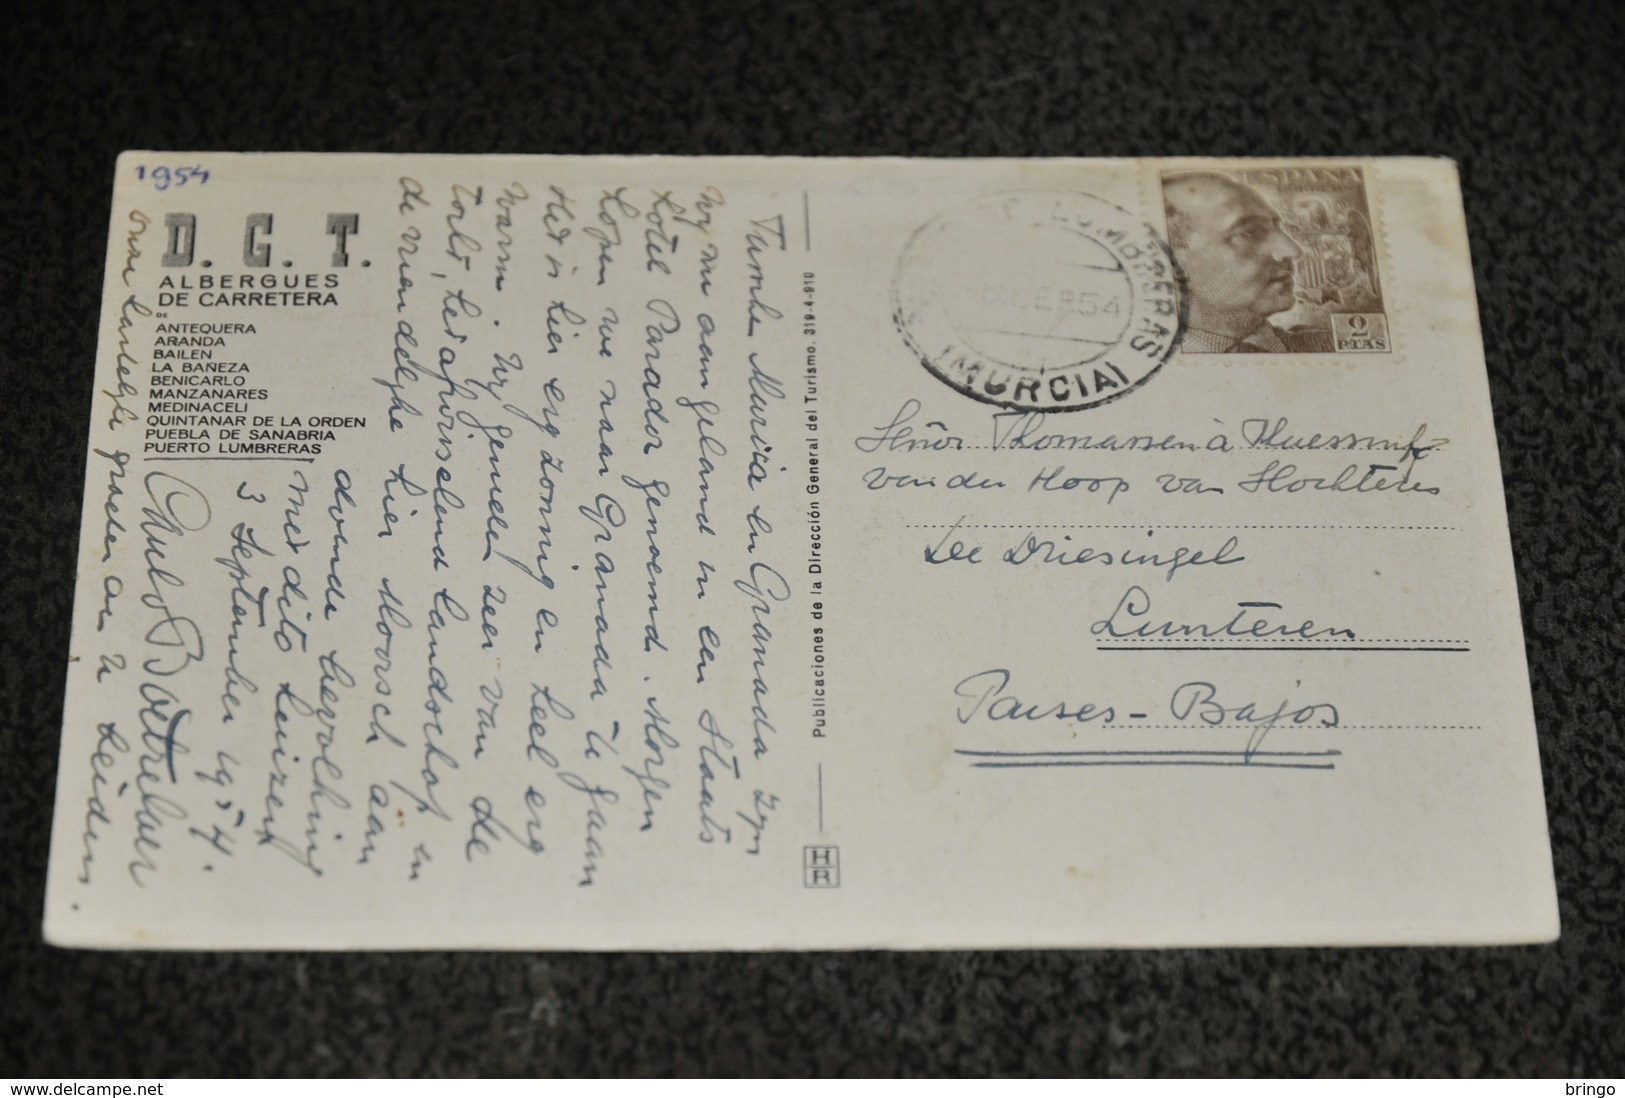 1954
D. G. T.
ALBERGUES
DE CARRETERA
DE
ANTEQUERA
ARANDA
BAILEN
LA BAÑEZA
BENICARLO
MANZANARES
MEDINACELI
QUINTANAR DE LA ORDEN
PUEBLA DE SANABRIA
PUERTO LUMBRERAS
Tusschen Murcia en Granada zyn
wy nu aangeland in een Staats
hotel Parador genoemd. Morgen
hopen we naar Granada te gaan
Het is hier erg zonnig en heel erg
warm. Wy genieten zeer van de
tocht, het afwisselend landschap en
de vriendelyke hier Moorsch aan
doende bevolking
met dito huizen
3 September 1954.
onze hartelyke groeten an u beiden.
Publicaciones de la Dirección General del Turismo. 319-4-910
HR
LUMBRERAS
SEP 54
(MURCIA)
ESPAÑA
2
PTAS
Señor Thomassen à Thuessink
van der Hoop van Slochteren
De Driesingel
Lunteren
Paises-Bajos
delcampe.net
bringo